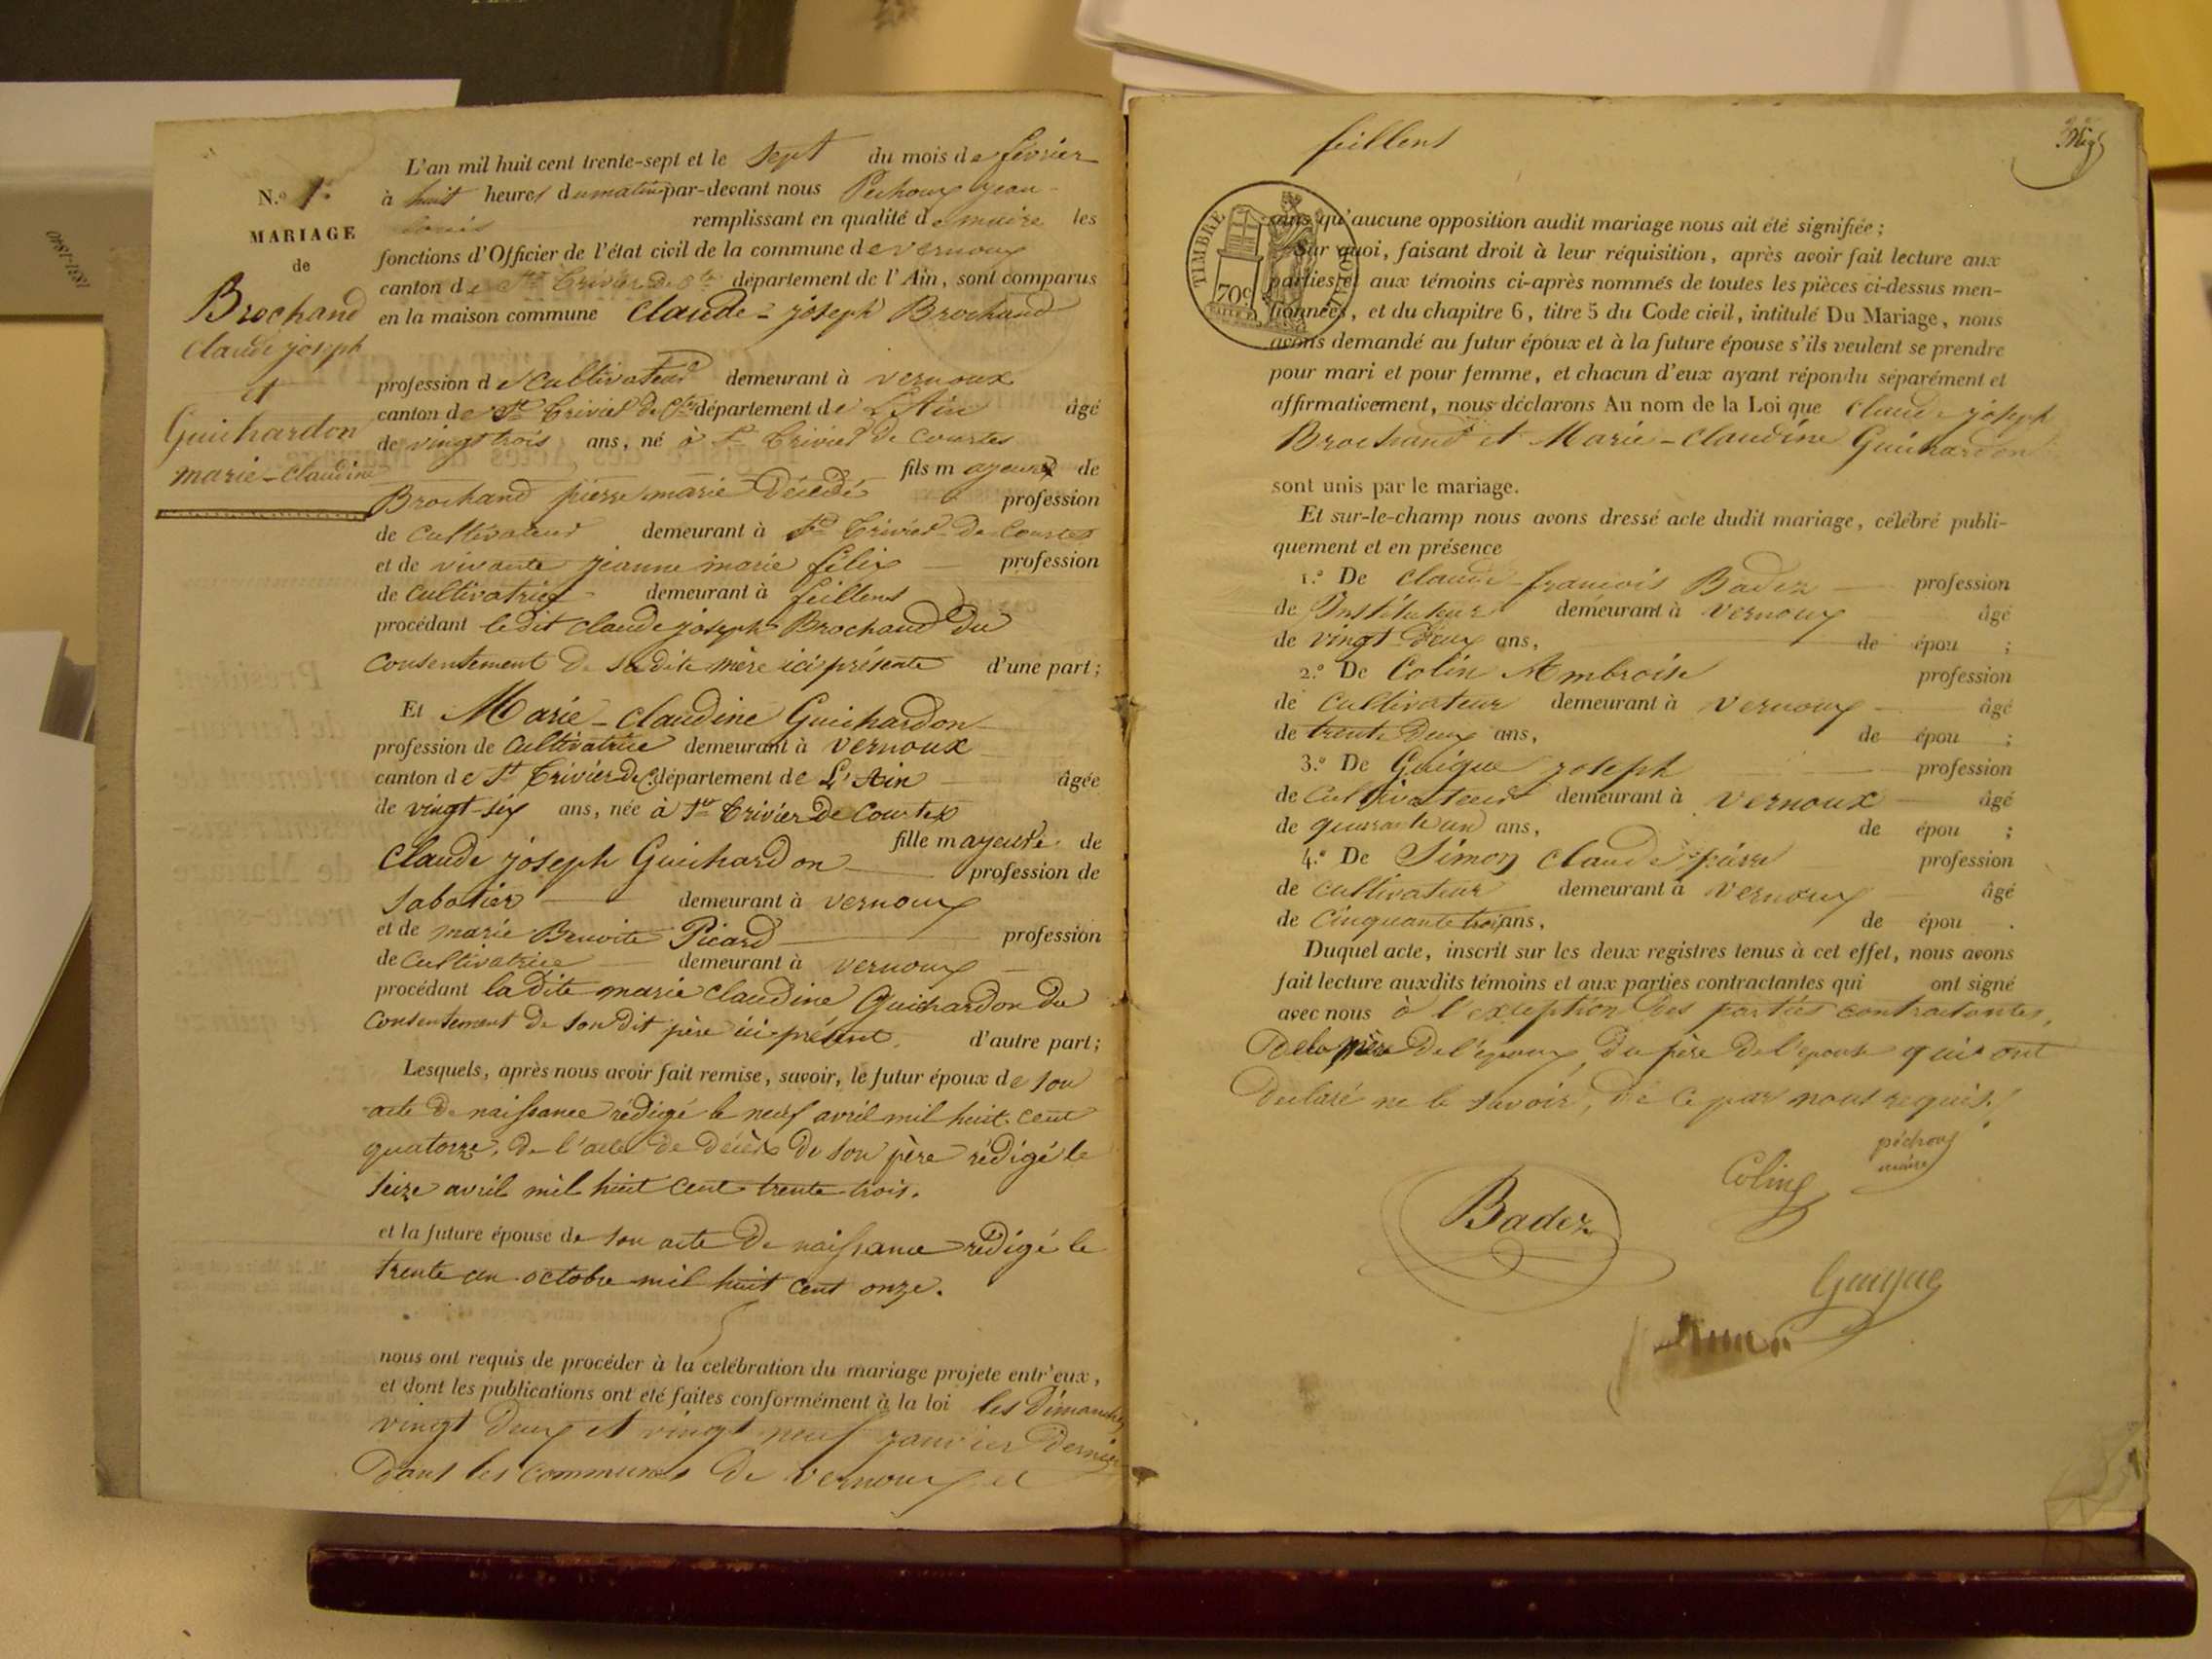 N.º 1.
MARIAGE
de
Brochand
Claude joseph
et
Guichardon
marie-claudine
L'an mil huit cent trente-sept et le sept du mois de février
à huit heures du matin par-devant nous Pechoux jean-
louis remplissant en qualité de maire les
fonctions d'Officier de l'état civil de la commune de vernoux
canton de St Trivier de Ctes département de l'Ain, sont comparus
en la maison commune Claude-joseph Brochand
profession de Cultivateur demeurant à vernoux
canton de St Trivier de Ctes département de L'Ain âgé
de vingt trois ans, né à St Trivier de Courtes
fils mayeur de
Brochand pierre marie Décédé profession
de Cultivateur demeurant à St Trivier De Courtes
et de vivante jeanne marie félix profession
de Cultivatrice demeurant à feillens
procédant ledit Claude joseph Brochand Du
Consentement De sadite mère ici présente d'une part;
Et Marie-Claudine Guichardon
profession de Cultivatrice demeurant à vernoux
canton de St Trivier de C. département de L'Ain âgée
de vingt-six ans, née à St Trivier De Courtes
fille mayeure de
Claude joseph Guichardon profession de
Sabotier demeurant à vernoux
et de marie Benoite Picard profession
de Cultivatrice demeurant à vernoux
procédant ladite marie Claudine Guichardon du
Consentement De son dit père ici présent. d'autre part;
Lesquels, après nous avoir fait remise, savoir, le futur époux de son
acte De naissance rédigé le neuf avril mil huit cent
quatorze, De l'acte De Décès De son père rédigé le
seize avril mil huit cent trente trois.
et la future épouse de son acte De naissance rédigé le
trente un octobre mil huit cent onze.
nous ont requis de procéder à la celébration du mariage projeté entr'eux,
et dont les publications ont été faites conformément à la loi les Dimanches
vingt Deux et vingt neuf janvier Dernier
Dans les communes De vernoux et
feillens
TIMBRE ROYAL
70c
sans qu'aucune opposition audit mariage nous ait été signifiée;
Sur quoi, faisant droit à leur réquisition, après avoir fait lecture aux
parties et aux témoins ci-après nommés de toutes les pièces ci-dessus men-
tionnées, et du chapitre 6, titre 5 du Code civil, intitulé Du Mariage, nous
avons demandé au futur époux et à la future épouse s'ils veulent se prendre
pour mari et pour femme, et chacun d'eux ayant répondu séparément et
affirmativement, nous déclarons Au nom de la Loi que Claude joseph
Brochand et Marie-Claudine Guichardon
sont unis par le mariage.
Et sur-le-champ nous avons dressé acte dudit mariage, célébré publi-
quement et en présence
1.º De Claude françois Badez profession
de Instituteur demeurant à vernoux âgé
de vingt Deux ans, de épou ;
2.º De Colin Ambroise profession
de Cultivateur demeurant à vernoux âgé
de trente Deux ans, de épou ;
3.º De Guigue joseph profession
de Cultivateur demeurant à vernoux âgé
de quarante un ans, de épou ;
4.º De Simon Claude pierre profession
de Cultivateur demeurant à vernoux âgé
de Cinquante trois ans, de épou .
Duquel acte, inscrit sur les deux registres tenus à cet effet, nous avons
fait lecture auxdits témoins et aux parties contractantes qui ont signé
avec nous à l'exception Des parties contractantes,
De la mère De l'epoux, Du père De l'epouse qui ont
Declaré ne le savoir, De ce par nous requis.
péchoux
maire
Colin
Badez
Guigue